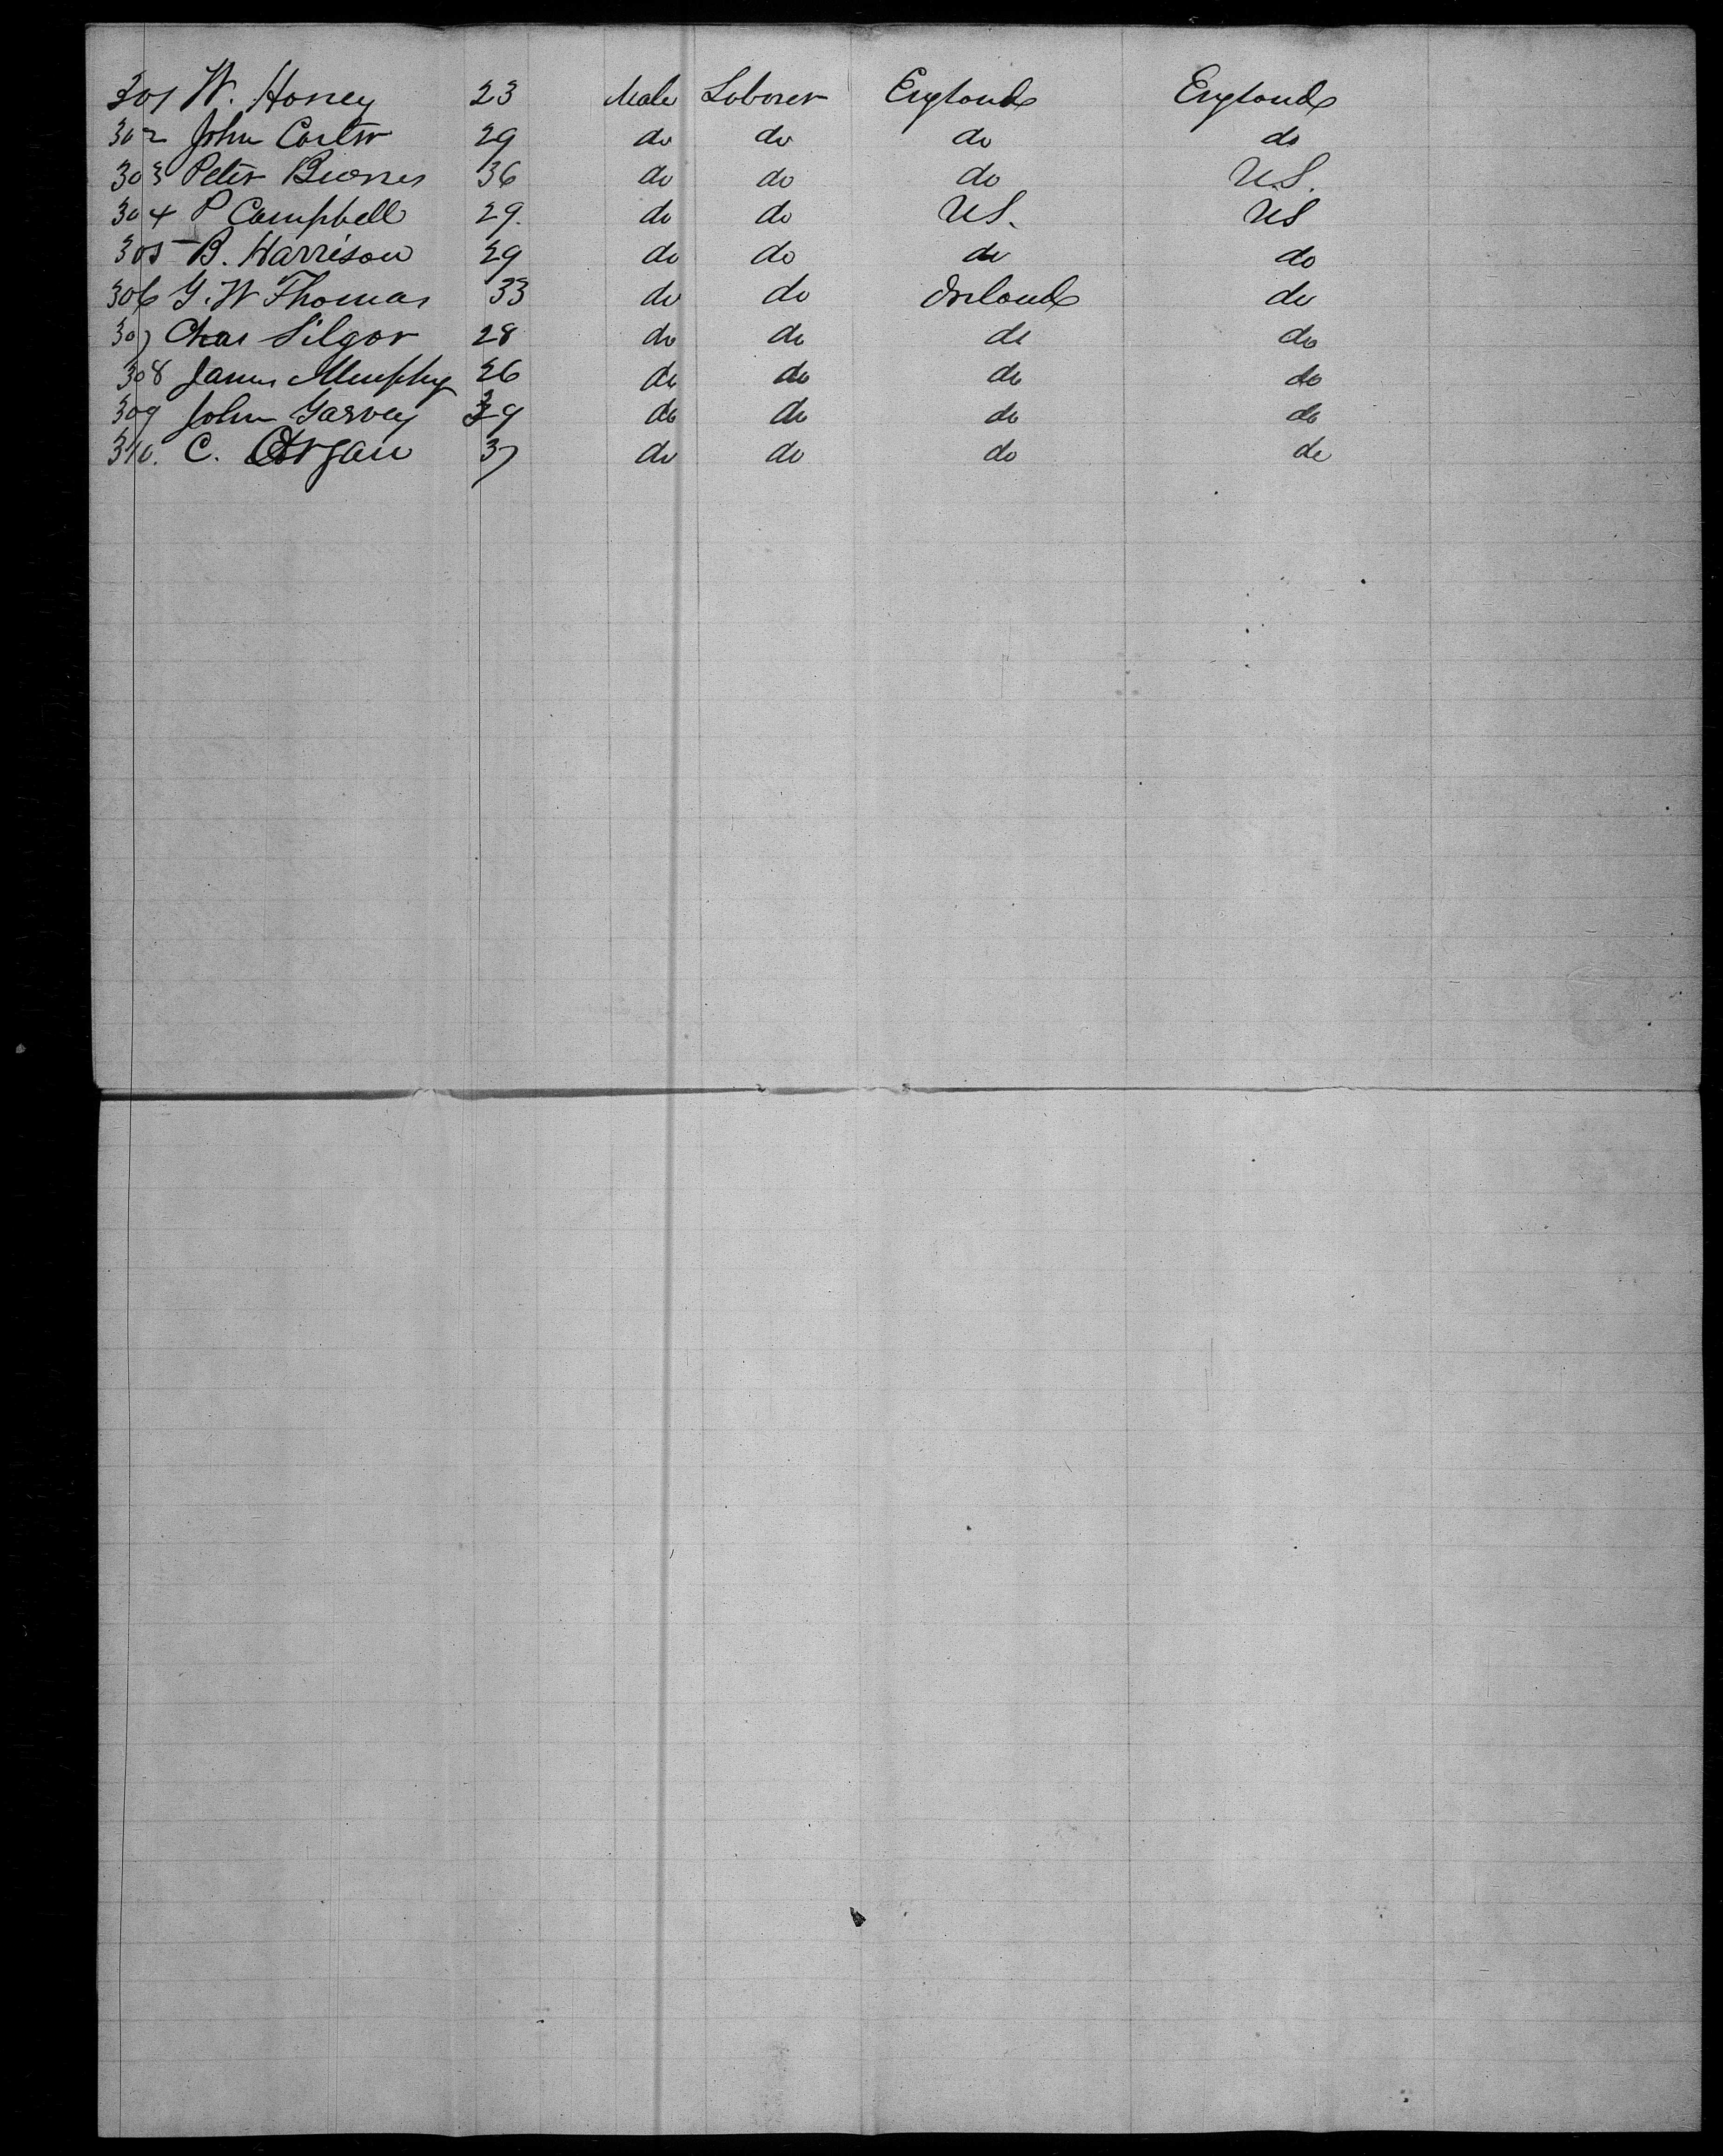 301 W. Honey 23 Male Laborer England England
302 John Carter 29 do do do do
303 Peter 36 do do do U.S.
304 P Campbell 29. do do U.S. US
305 B. Harrison 29 do do do do
306 G. W Thomas 33 do do Ireland do
307 Chas Silgor 28 do do do do
308 James Murphy 26 do do do do
309 John Garvey 39 do do do do
310. C. Organ 37 do do do do